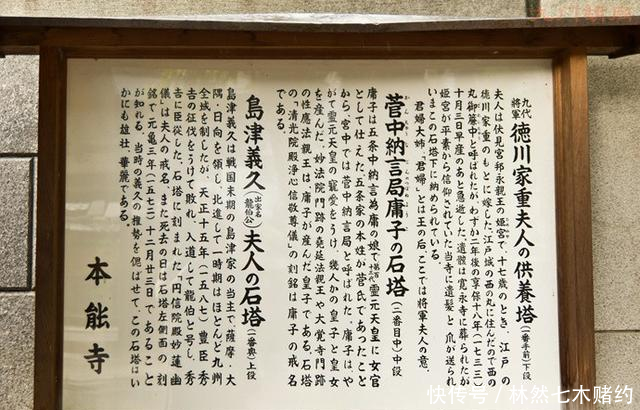 九代将軍 徳川家重夫人の供養塔(一番手前)下段
夫人は伏見宮邦永親王の姫宮で、十七歳のとき、江戸の
徳川家重のもとに嫁した。江戸城の西の丸に住んだので西の
丸御簾中と呼ばれたが、わずか二年後の享保十八年(一七三三)
十月三日早産のあと急逝した。遺骸は寛永寺に葬られたが
姫宮が平素から信仰されていた当寺に遺髪と爪が送られ
いまこの石塔下に納められている。
「君婦大姉」「君婦」とは王の后、ここでは将軍夫人の意。
菅中納言局庸子の石塔(二番目中)中段
庸子は五条中納言為庸の娘で霊元天皇に女官
として仕えた五条家の本姓が菅氏であったこと
から、宮中では菅中納言局と呼ばれた。庸子はや
がて霊元天皇の寵愛をうけ、幾人かの皇子と皇女
を産んだ。妙法院門跡の堯延法親王や大覚寺門跡
の性應法親王は、庸子が産んだ皇子である。石塔
の「清光院殿浄心信敬尊儀」の刻銘は庸子の戒名
である。
島津義久(出家名龍伯公)夫人の石塔(一番奥)上段
島津義久は戦国末期の島津家の当主で、薩摩・大
隅・日向を領し、北進して一時期はほとんど九州
全域を制したが、天正十五年(一五八七)豊臣秀
吉の征伐をうけて敗れ、入道して龍伯と号し、秀
吉に臣従した。石塔に刻まれた「円信院殿妙蓮幽
儀」は夫人の戒名、また死去の日は石塔左側面の刻
銘で元亀三年(一五七二)十二月廿三日であること
が知れる。当時の義久の権勢を偲ばせて、この石塔はい
かにも雄壮、華麗である。
本能寺
快传号/林然七木赌约